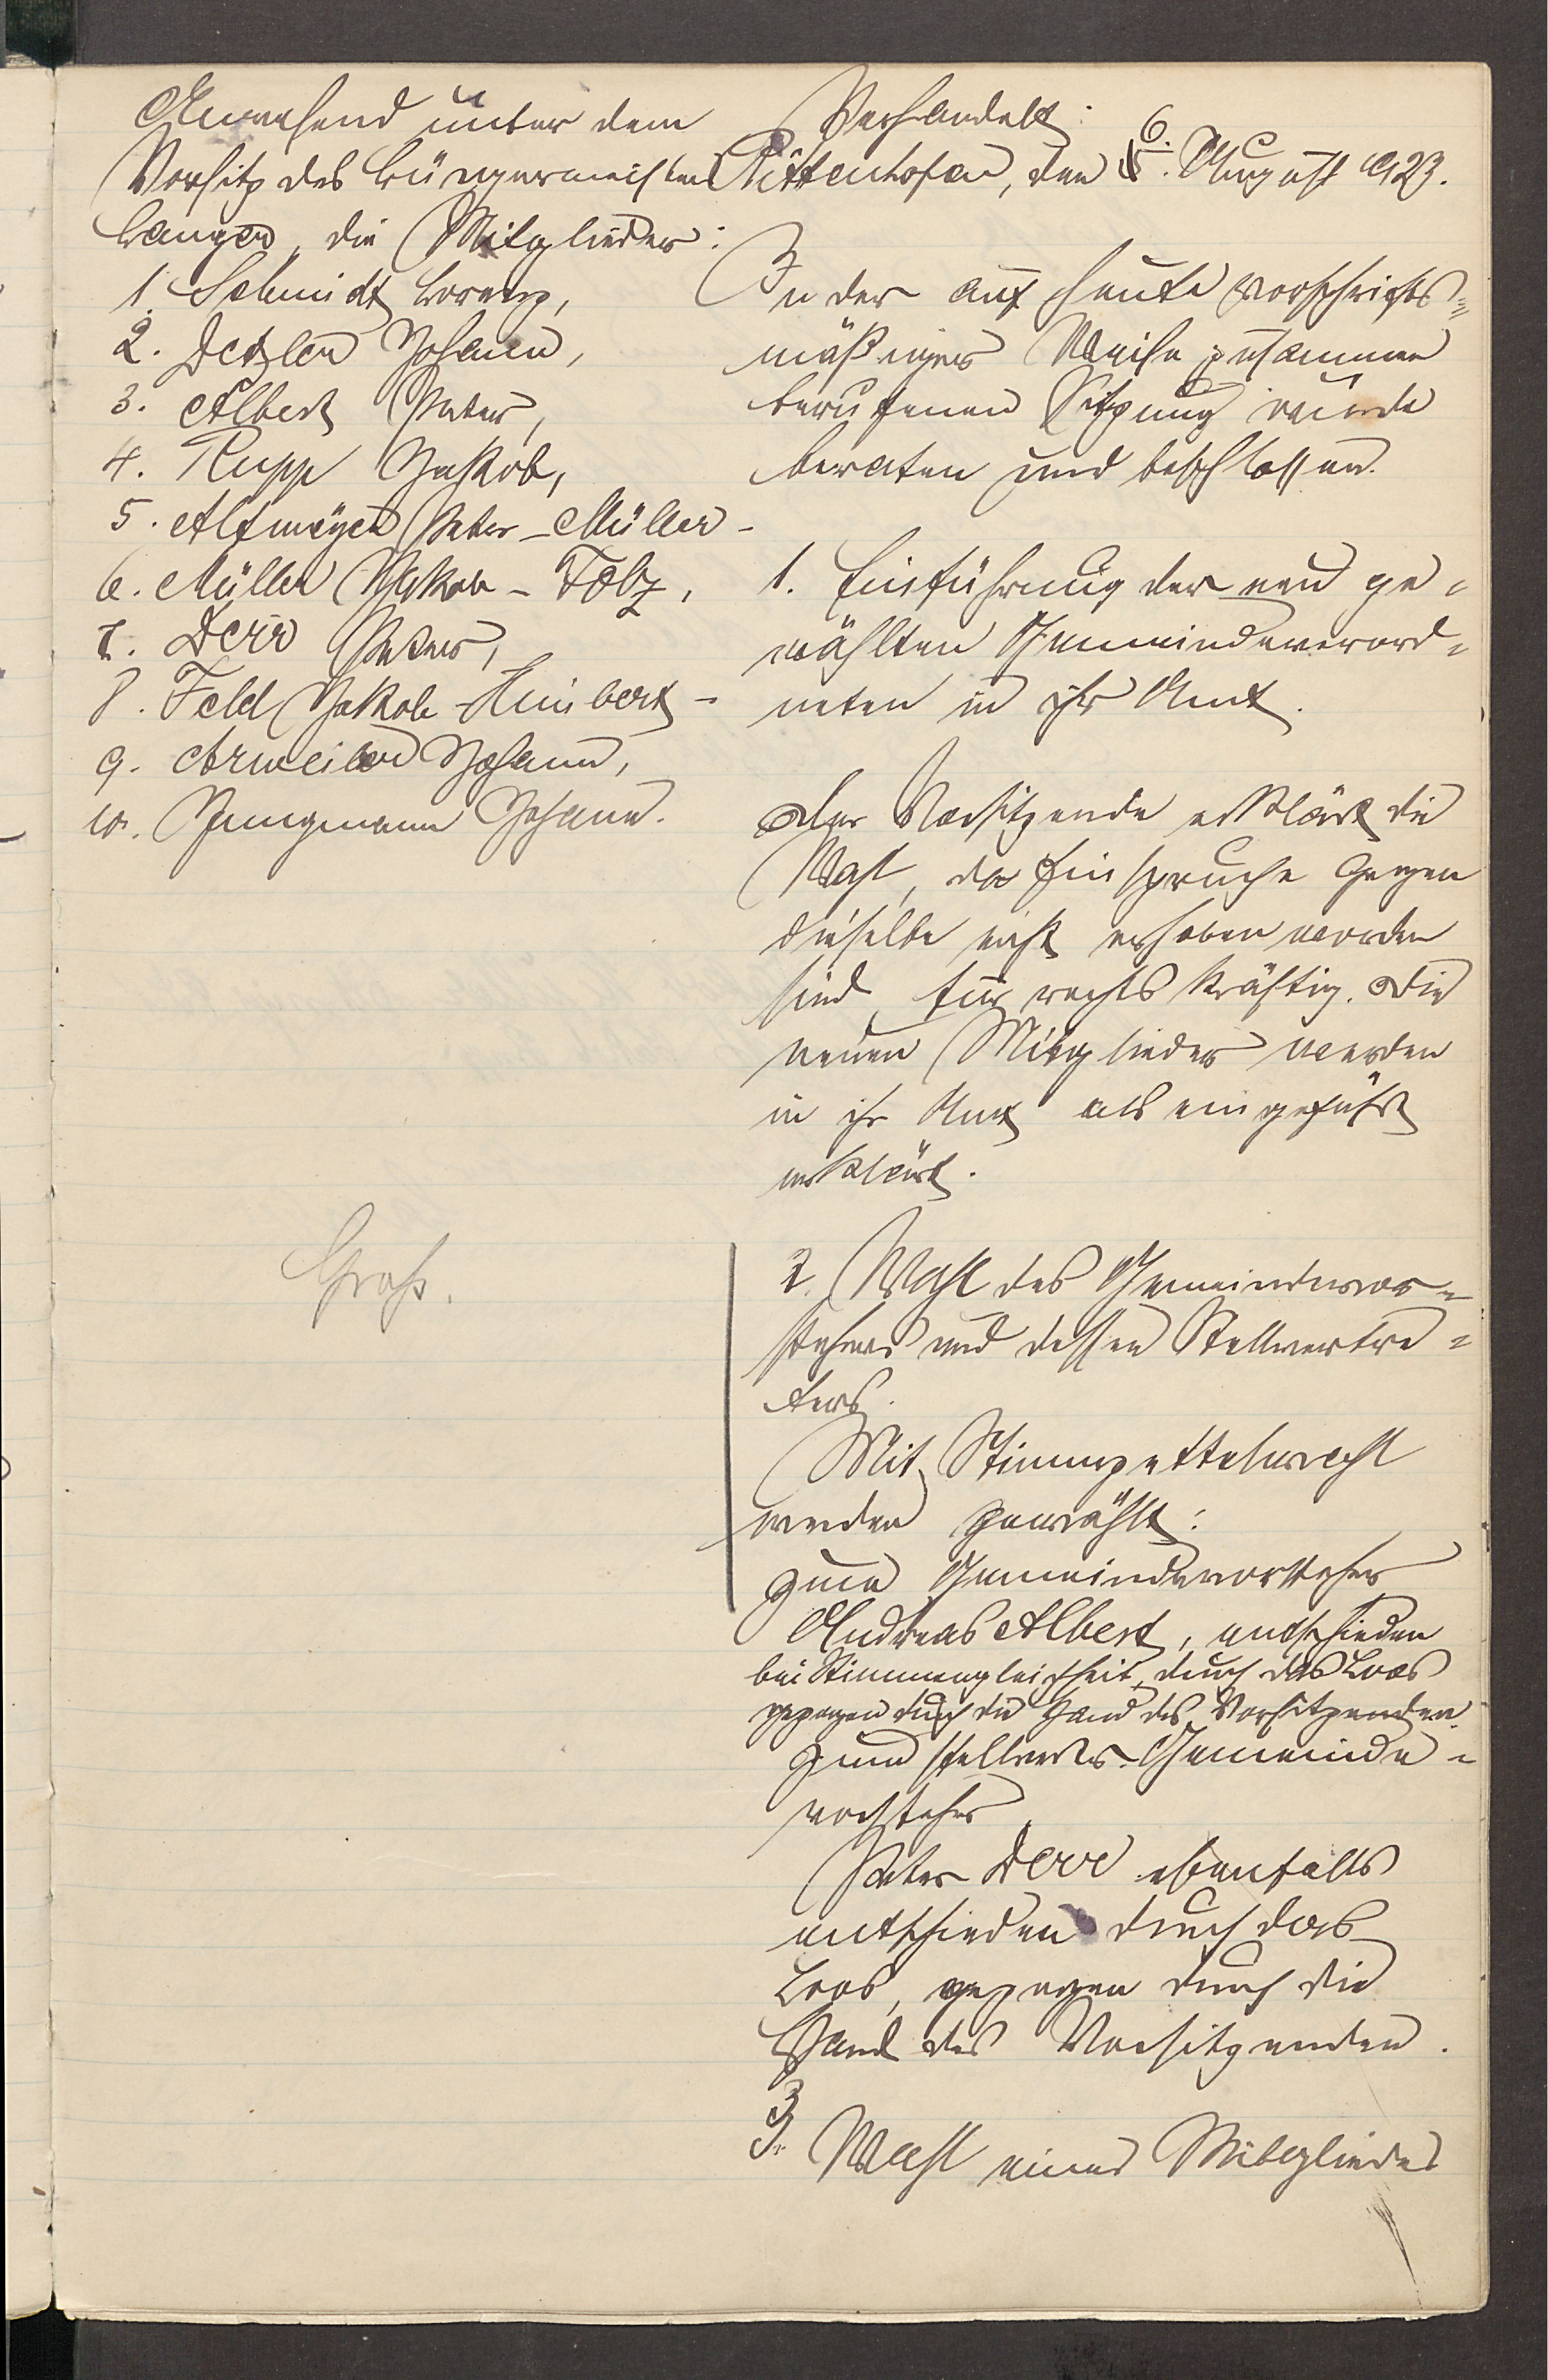 Anwesend unter dem
Vorsitz des Bürgermeisters
Langer, die Mitglieder:
1. Schmidt Lorenz,
2. Detzler Johann,
3. Albert Peter,
4. Rupp Jakob,
5. Altmeyer Peter-Müller-
6. Müller Jakob-Folz,
7. Derr Peter,
8. Feld Jakob-Heubert-
9. Arweiler Johann,
10. Jungmann Johann.
Groß.
Verhandelt:
Püttenhofen, den 6. August 1923.
In der auf heute vorschrifts=
mäßiger Weise zusammen
berufenen Sitzung wurde
beraten und beschlossen.
1. Einführung der neu ge=
wählten Gemeindeverord=
neten in ihr Amt.
Der Vorsitzende erklärt die
Wahl, da Einspruche gegen
dieselbe nicht erhoben worden
sind für rechtskräftig. Die
neuen Mitglieder werden
in ihr Amt als eingeführt
erklärt.
2. Wahl des Gemeindevor=
stehers und dessen Stellvertre=
ters.
Mit Stimmzettelwahl
werden gewählt:
zum Gemeindevorsteher
Andreas Albert, entschieden
bei Stimmengleichheit, durch das Loos
gezogen durch die Hand des Vorsitzenden.
zum stellvertr. Gemeinde=
vorsteher
Peter Derr ebenfalls
entschieden durch das
Loos, gezogen durch die
Hand des Vorsitzenden.
3. Wahl eines Mitgliedes